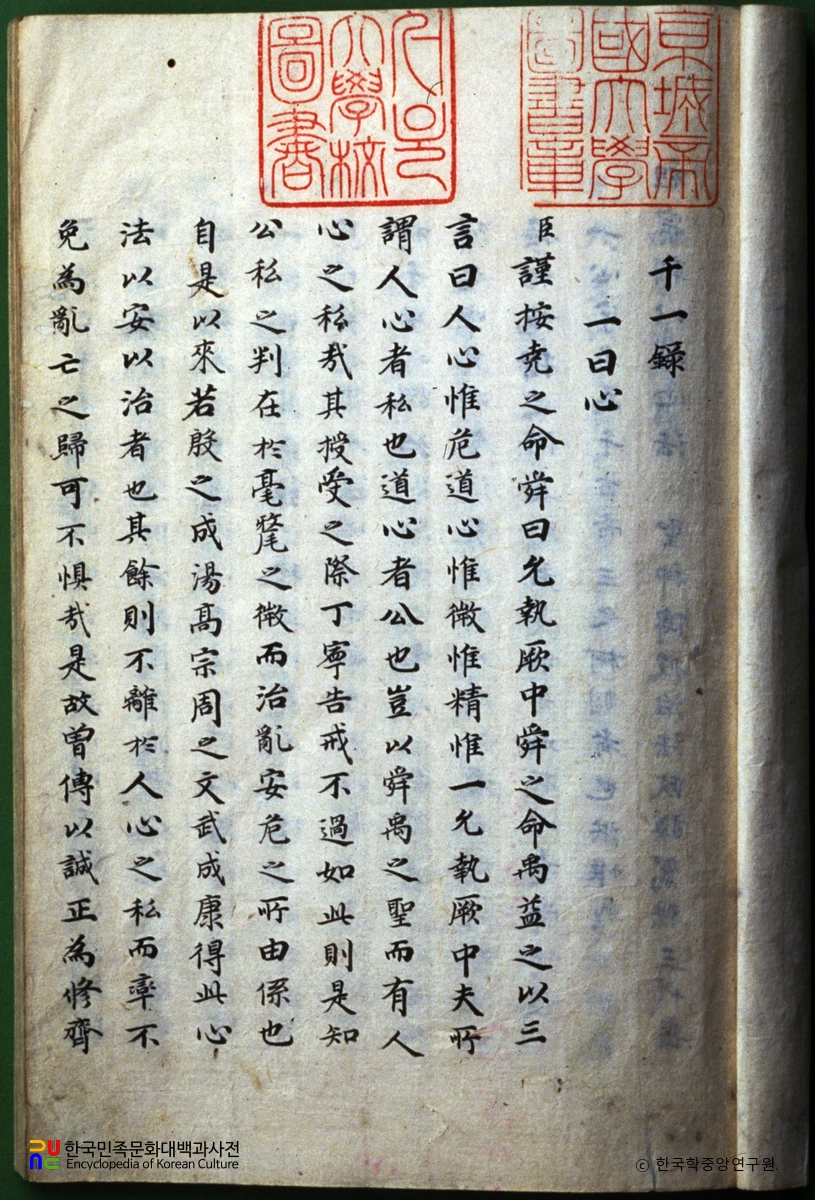 京城帝
國大學
圖書章
서울
大學校
圖書
千一錄
一曰心
臣謹按堯之命舜曰允執厥中舜之命禹益之以三
言曰人心惟危道心惟微惟精惟一允執厥中夫所
謂人心者私也道心者公也豈以舜禹之聖而有人
心之私哉其授受之際丁寧告戒不過如此則是知
公私之判在於毫氂之微而治亂安危之所由係也
自是以來若殷之成湯高宗周之文武成康得此心
法以安以治者也其餘則不離於人心之私而率不
免為亂亡之歸可不懼哉是故曾傳以誠正為修齊
한국민족문화대백과사전
Encyclopedia of Korean Culture
© 한국학중앙연구원